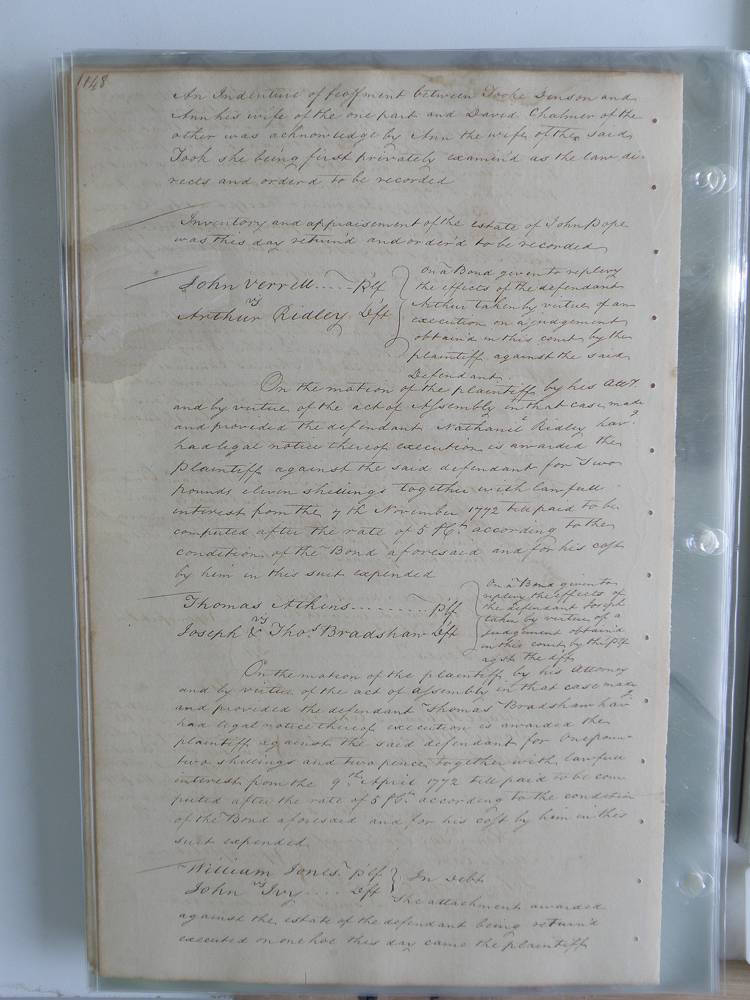 1148
An Indenture of feoffment between Tooke Denson and
Ann his wife of the one part and David Chalmer of the
other was acknowledge by Ann the wife of the said
Took she being first privately examin'd as the law di-
rects and order'd to be recorded
Inventory and appraisement of the estate of John Pope
was this day return'd and order'd to be recorded
John Verrell ..... Plf
vs
Arthur Ridley Dft
On a Bond given to replevy
the effects of the defendant
Arthur taken by virtue of an
execution on a judgement
obtain'd in this court by the
plaintiff against the said
Defendant
On the motion of the plaintiff by his Atty
and by virtue of the act of Assembly in that case made
and provided the defendant Nathaniel Ridley hav.g
had legal notice thereof execution is awarded the
plaintiff against the said defendant for Two
pounds eleven shillings together with lawfull
interest from the 7th November 1772 till paid to be
computed after the rate of 5 P Ct. according to the
condition of the Bond aforesaid and for his cost
by him in this suit expended
Thomas Atkins ......... Plf
vs
Joseph & Thos Bradshaw Dft
On a Bond given to
replevy the effects of
the defendant Joseph
taken by virtue of a
Judgement obtain'd
in this court by the Plf
agst the dft
On the motion of the plaintiff by his Attorney
and by virtue of the act of Assembly in that case made
and provided the defendant Thomas Bradshaw hav.g
had legal notice thereof execution is awarded the
plaintiff against the said defendant for One poun-
two shillings and two pence together with lawfull
interest from the 9th April 1772 till paid to be com
puted after the rate of 5 P Ct. according to the condition
of the Bond aforesaid and for his cost by him in this
suit expended
William Jones Plf
vs
John Ivy .... Dft
In Debt
The attachment awarded
against the estate of the defendant being return'd
executed on one hoe this day came the plaintiff